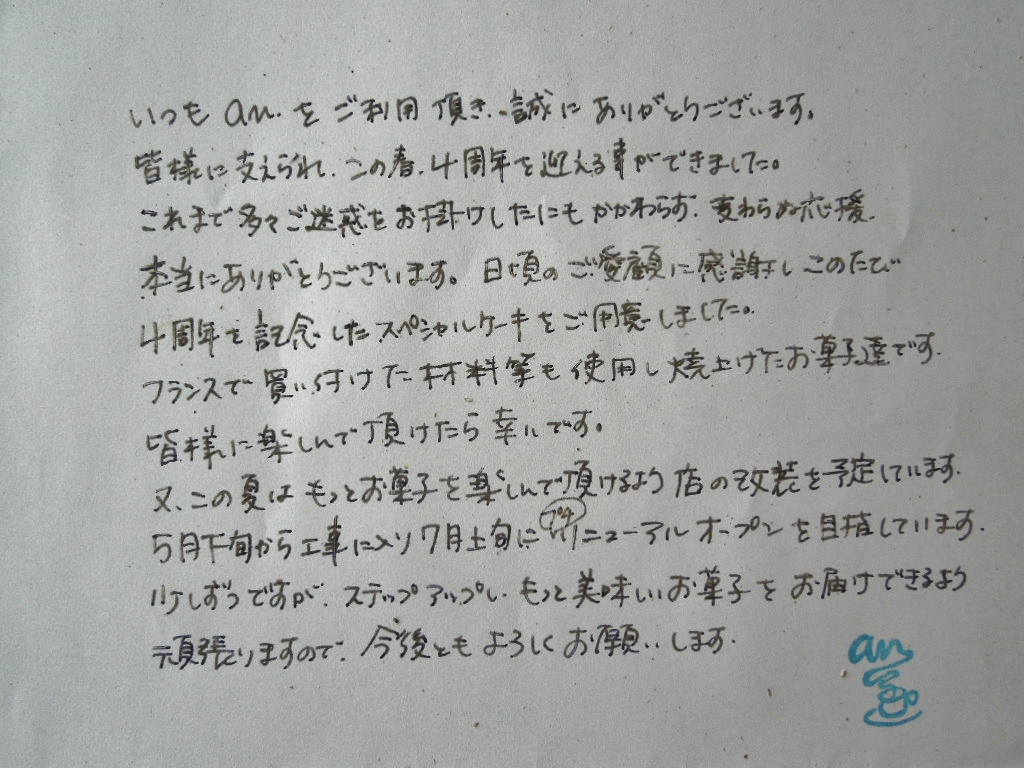 いつも an. を ご利用 頂き、誠に ありがとうございます。
皆様に 支えられ、この春、4周年を 迎える事ができました。
これまで 多々 ご迷惑を お掛けしたにも かかわらず、変わらぬ応援、
本当に ありがとうございます。日頃の ご愛顧に 感謝し このたび
4周年を 記念した スペシャルケーキを ご用意しました。
フランスで 買い付けた 材料等も 使用し 焼上げた お菓子達です。
皆様に 楽しんで 頂けたら 幸いです。
又、この夏は もっと お菓子を 楽しんで 頂けるよう 店の 改装を 予定しています。
5月下旬から 工事に入り 7月上旬に プチ リニューアル オープンを 目指しています。
少しずつですが、ステップアップし、もっと 美味しい お菓子を お届けできるよう
頑張りますので、今後とも よろしく お願いします。
an